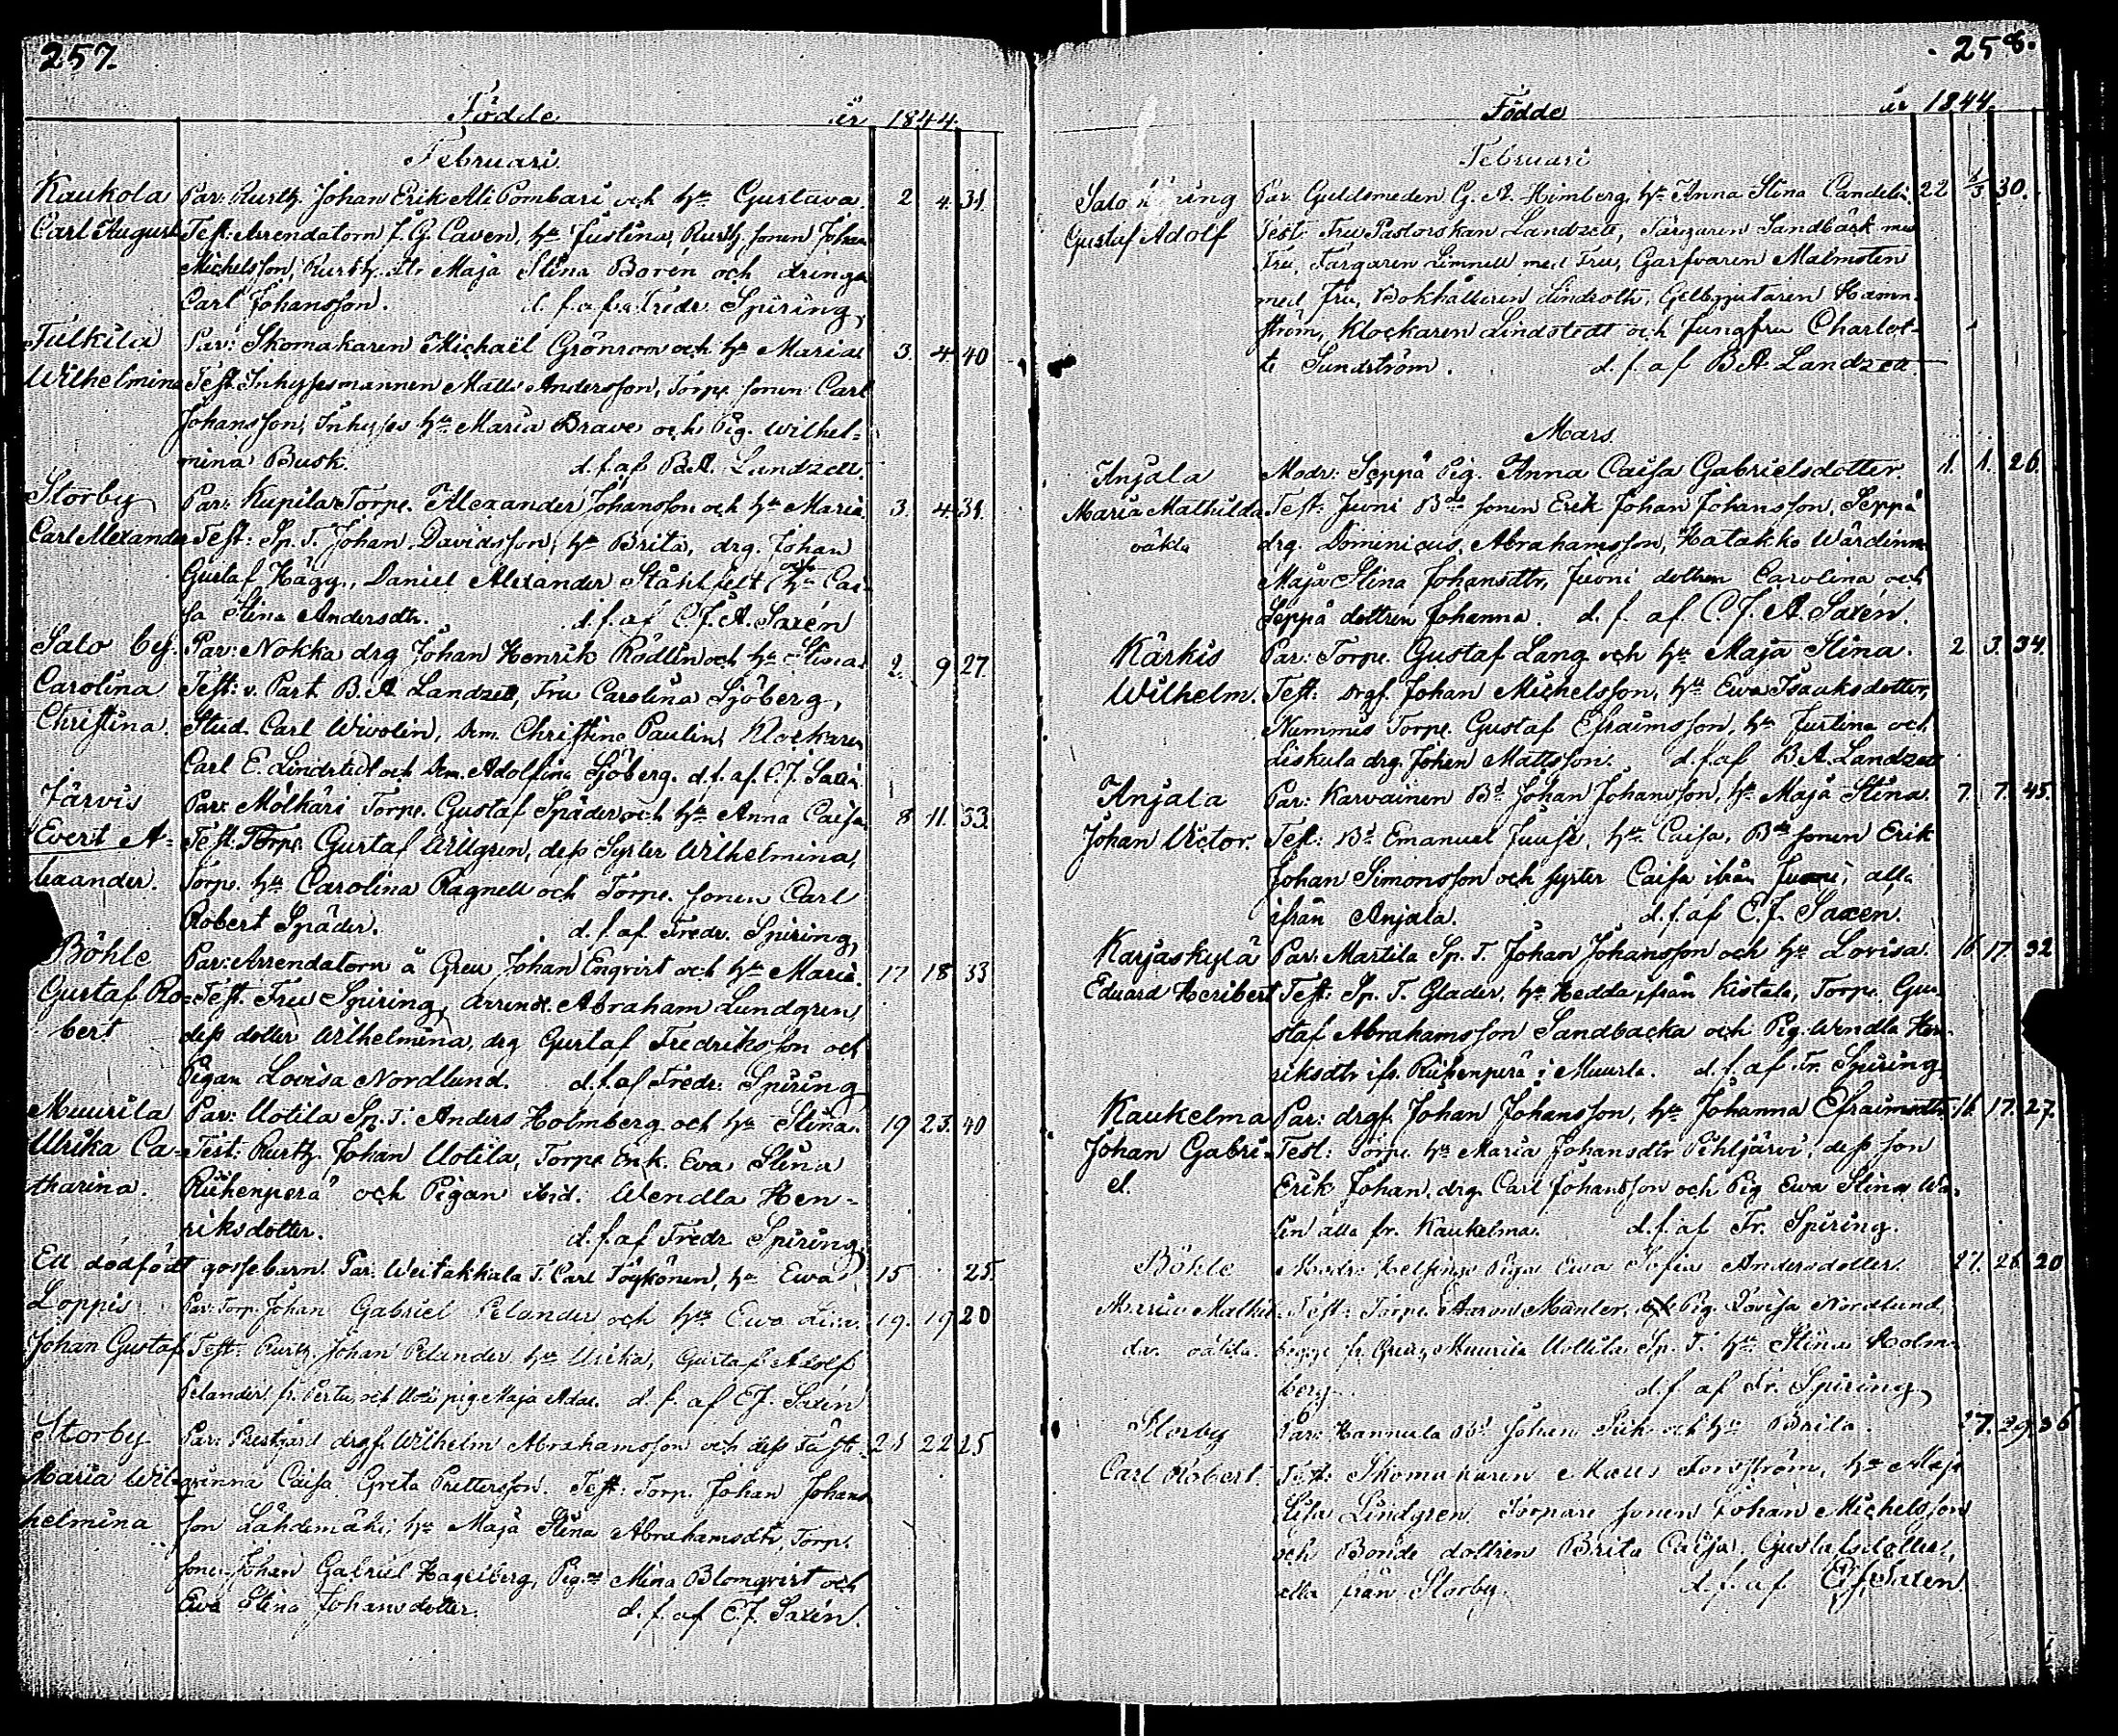 257.
Födde år 1844.
Februari
Kaukola Par: Rusth. Johan Erik Ali Pombari och h:u Gustava. 2 4. 31.
Carl August Test: Arrendatorn J. G. Caven, h:u Justina, Rusth. sonen Johan
Michelsson, Rusth. Maja Stina Boren och drängen
Carl Johansson. d. f. af Fredr. Spiring,
Par: Skomakaren Michaël Grönroos och h:u Maria 3. 4 40
Wilhelmina Test. Inhysesmannen Matts Andersson, Torp. sonen Carl
Johansson, Inhyses h:u Maria Brave och Pig. Wilhel=
mina Busk. d. f. af B.A. Landzell.
Storby Par: Kupila Torp. Alexander Johansson och h:u Maria. 3. 4 31.
Carl Alexander Test: Sp. T. Johan Davidsson, h:u Brita, drg. Johan
Gustaf Hägg, Daniel Alexander Ståhlfelt och h:u Cai-
sa Stina Andersdtr. d. f. af C. J. A. Saxén
Salo by. Par: Nokka drg Johan Henrik Rödlin och h:u Stina. 2. 9 27.
Carolina Test: v. Past B. A Landzell, Fru Carolina Sjöberg,
Christina. Stud. Carl Wivolin, Dem. Christine Paulin, Klockaren
Carl E. Lindstedt och Dem. Adolfina Sjöberg. d. f. af C. J. Saxén
Järvis Par: Mölkäri Torp. Gustaf Späder och h:u Anna Caisa 8 11. 33.
Evert A= Test: Torp. Gustaf Willgren, dess Syster Wilhelmina,
Torp. h:u Carolina Ragnell och Torp. sonen Carl
Robert Späder. d. f. af Fredr. Spiring,
Böhle Par: Arrendatorn å Greu Johan Enqvist och h:u Maria. 17 18 33
Gustaf Ro= Test. Fru Spiring, Arrend. Abraham Lundgren,
bert dess dotter Wilhelmina, drg Gustaf Fredriksson och
Pigan Lovisa Nordlund. d. f. af Fredr. Spiring
Muurila Par: Uotila Sp. T. Anders Holmberg och h:u Stina. 19 23. 40
Ulrika Ca= Test: Rusth. Johan Uotila, Torp. Enk. Eva Stina
tharina. Riihenperä och Pigan ibid. Wendla Hen=
riksdotter. d. f. af Fredr Spiring
Ett dödfödt gossebarn. Par. Weitakkala T. Carl Töykönen, h:u Ewa 15 25.
Loppis Par: Torp. Johan Gabriel Pelander och h:u Ewa Lisa. 19. 19 20
Johan Gustaf Test: Rusth. Johan Pelander h:u Ulrika, Gustaf Adolf
Pelander fr. Perttu, och pig Maja d. f. af C. J. Saxén
Storby Par: Prestgård drgs. Wilhelm Abrahamsson och dess Fäste- 21 22 25
Maria Wil- qvinna Caisa Greta Pettersson. Test: Torp. Johan Johans
helmina son Lähdemäki, h:u Maja Stina Abrahamsdtr, Torp.
sonen Johan Gabriel Hagelberg, Pig:ne Mina Blomqvist och
Ewa Stina Johansdotter. d. f. af C. J. Saxén.
258.
Födde år 1844.
Februari
Salo Par Guldsmeden G. A. Heimberg, h:u Anna Stina 22 2/3 30.
Gustaf Adolf Test: Fru Pastorskan Landzell, Färgaren Sandbäck med
Fru, Färgaren Limnell med Fru, Garfvaren Malmsten
med fru, Bokhållaren Lindroth, Gelbgjutaren Hamn-
ström, Klockaren Lindstedt och Jungfru Charlot-
te Sundström. d. f. af B.A. Landzell.
Mars
Anjala Modr: Seppä Pig. Anna Caisa Gabrielsdotter. 1. 1. 26.
Maria Mathilda Test: Juoni B:de sonen Erik Johan Johansson, Seppä
oäkta drg. Dominicus Abrahamsson, Hatakko Wärdinn
Maja Stina Johansdtr, Juoni dottren Carolina och
Seppä dottren Johanna. d. f. af. C. J. A. Saxén.
Kärkis Par: Torp. Gustaf Lang och h:u Maja Stina. 2 3. 34.
Wilhelm. Test: drgs. Johan Michelsson, h:u Ewa Isaaksdotter,
Nummis Torp. Gustaf Efraimsson, h:u Justina och
Liskula drg. Johan Mattsson. d. f. af B A. Landzell
Anjala Par: Karvainen B:d Johan Johansson, h:u Maja Stina. 7. 7. 45.
Johan Victor. Test: B:d Emanuel Juusi, h:u Caisa, B:de sonen Erik
Johan Simonsson och syster Caisa ifrån Juoni, alla
ifrån Anjala. d. f. af C. J. Saxen.
Karjaskylä Par: Martila Sp. T. Johan Johansson och h:u Lovisa. 16. 17. 32
Eduard Heribert Test: Sp. T. Glader, h:u Hedda, ifrån Kistala, Torp. Gus-
staf Abrahamsson Sandbacka och Pig. Wendla Hen-
riksdtr ifr. Riihenperä i Muurla. d. f. af Fr. Spiring,
Kaukelma Par: drgs. Johan Johansson, h:u Johanna Efraimsdtr. 16. 17. 27.
Johan Gabri- Test: Torp. h:u Maria Johansdtr Pihljärvi, dess son
el. Erik Johan, drg. Carl Johansson och Pig Ewa Stina Wa-
lin alla fr. Kaukelma. d. f. af Fr. Spiring.
Böhle Modr: Helsinge Pigan Ewa Sofia Andersdotter. 27. 28. 20
Maria Mathil- Test: Torp. Aaron Manler, Pig. Lovisa Nordlund,
da. oäkta. begge fr. Greu, Muurila Uottila Sp. T. h:u Stina Holm-
berg. d. f. af Fr. Spiring,
Storby Par: Hannula B:d Johan Erik och h:u Brita. 27. 29. 36
Carl Robert Test: Skomakaren Matts Forsström, h:u Maja
Lisa Lindgren, Torpare sonen Johan Michelsson
och Bonde dottren Brita Caisa Gustafsdotter,
alla från Storby. d. f. af C. J. Saxen.